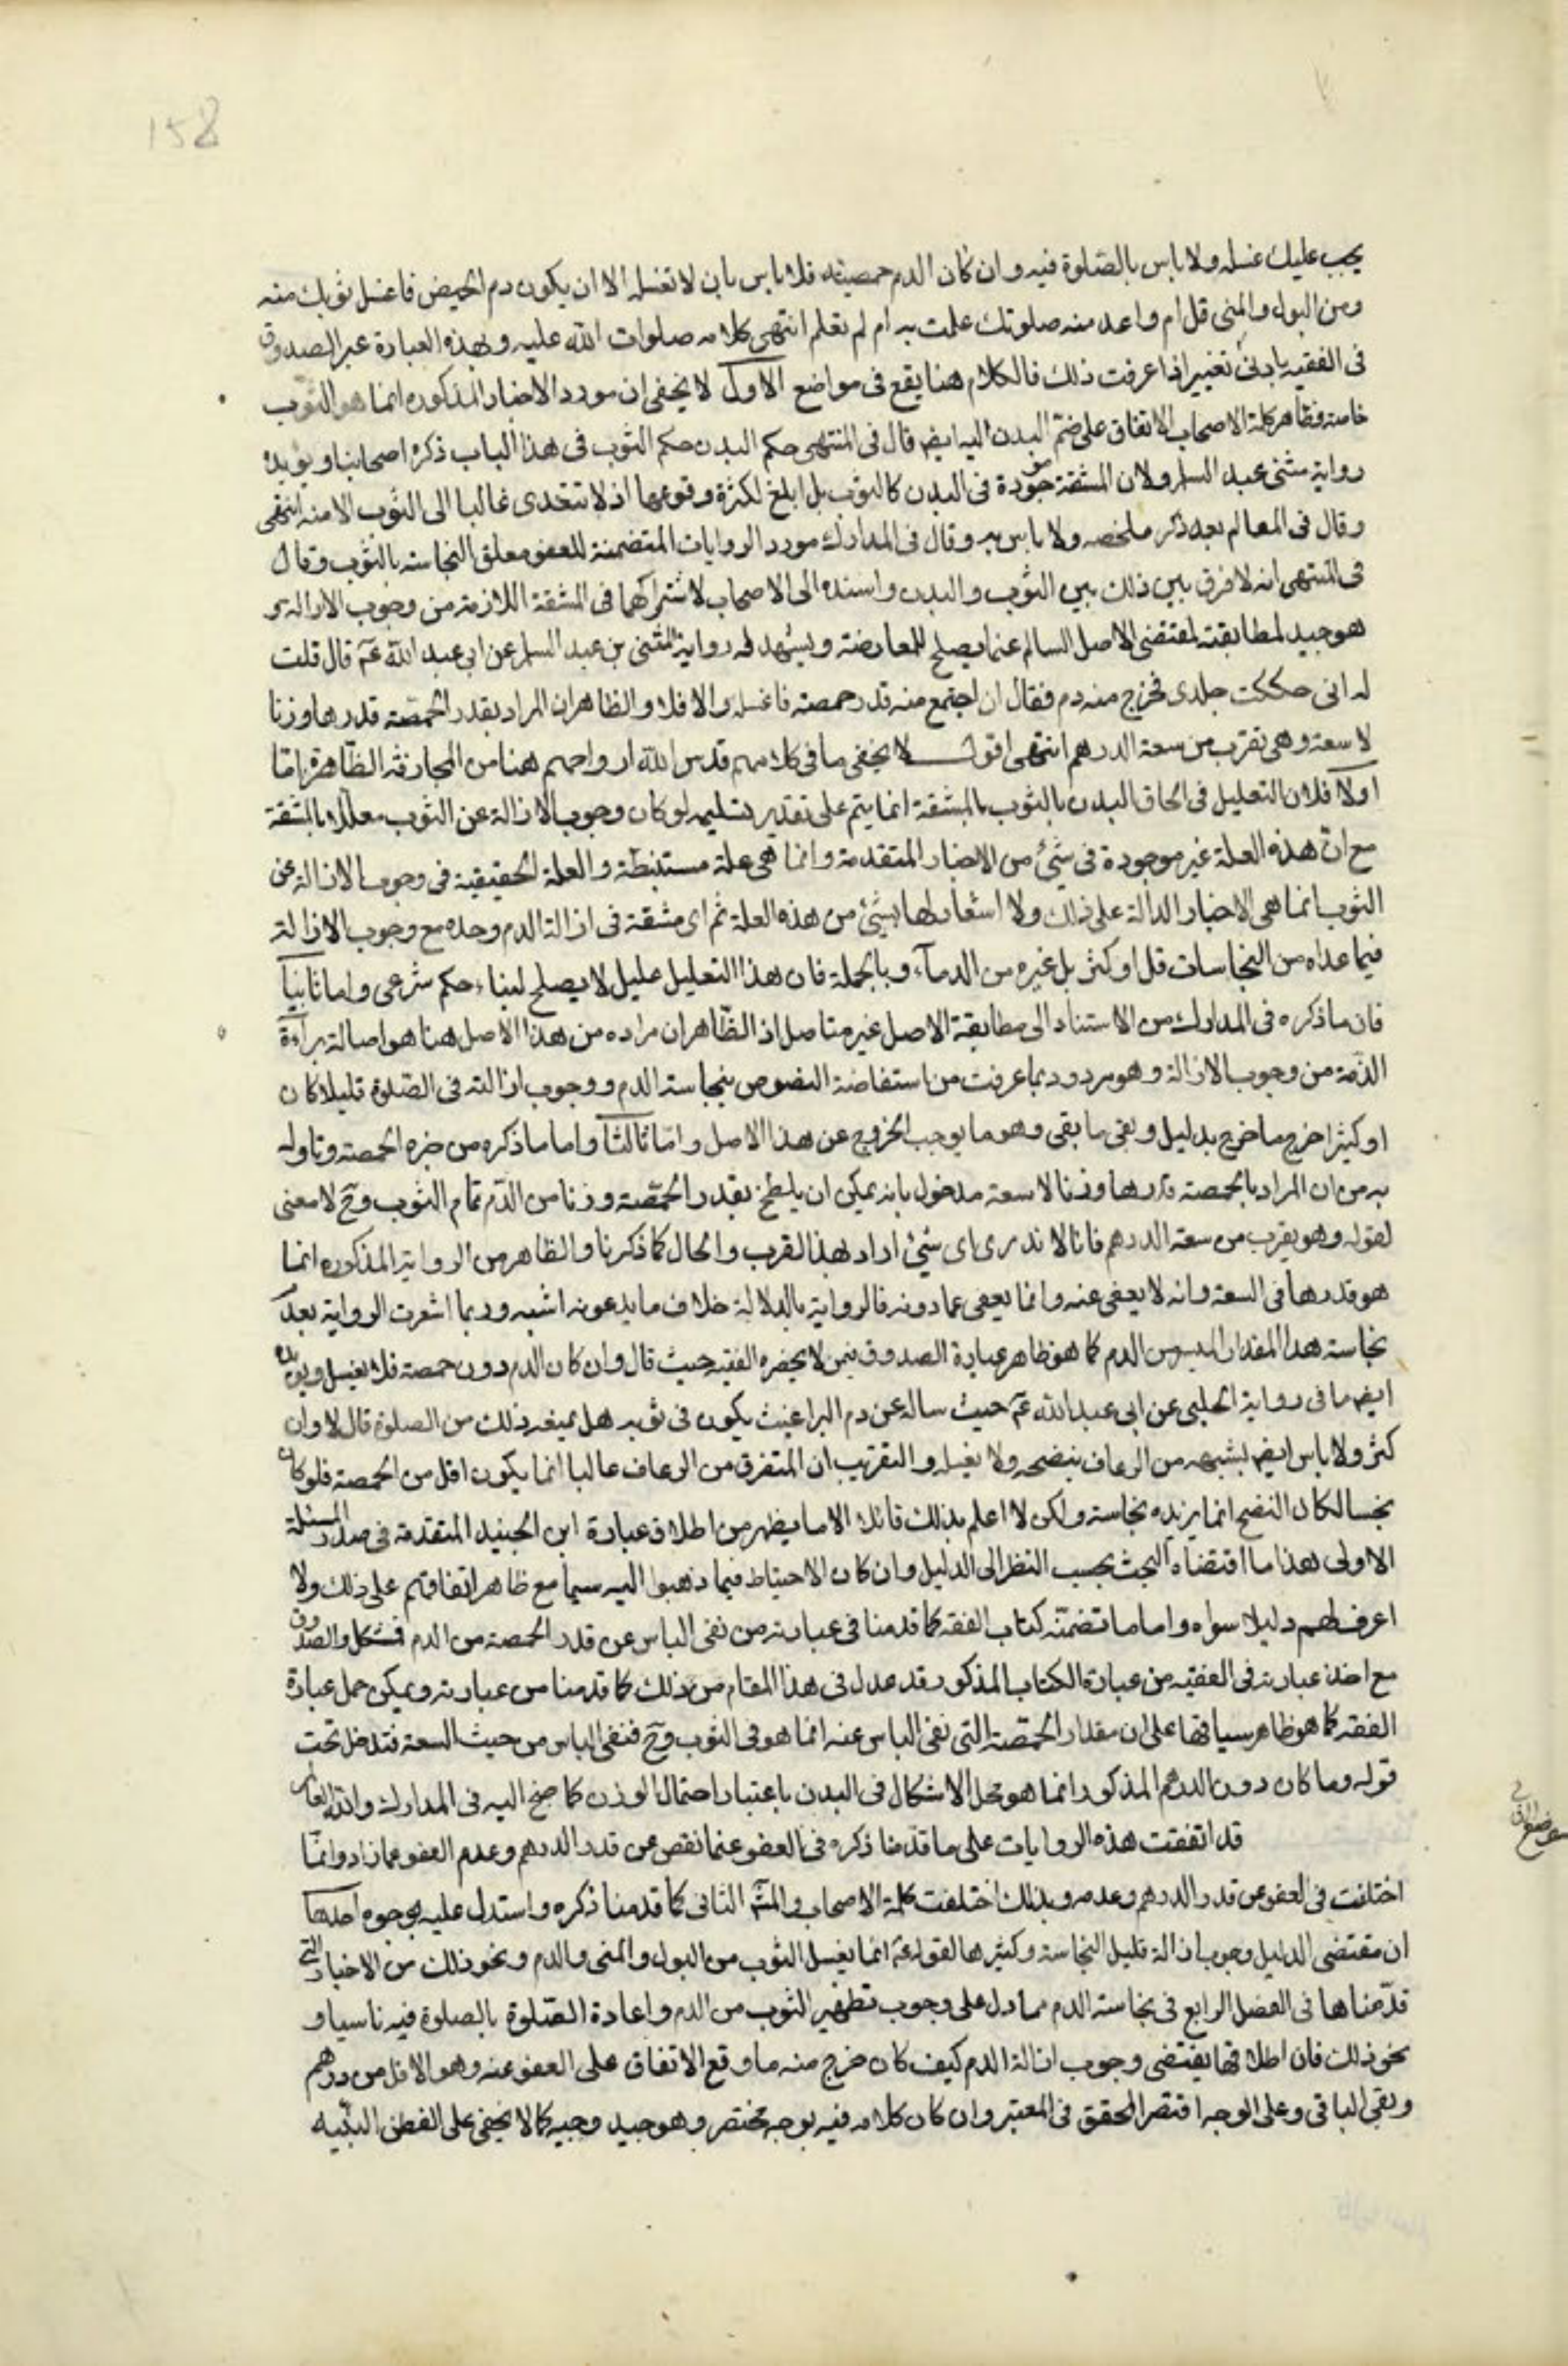 158
يجب عليك غسله ولا باس بالصّلوة فيه وان كان الدم حمصيته فلا باس بان لا تغسله الا ان يكون دم الحيض فاغسل ثوبك منه
ومن البول والمنى قل ام واعد منه صلوتك علمت به ام لم تعلم انتهى كلامه صلوات الله عليه وبهذه العبارة عبر الصدوق
فى الفقيه بادنى تغيير اذا عرفت ذلك فالكلام هنا يقع فى مواضع الاول لا يخفى ان مورد الاخبار المذكوره انما هو الثوب
خاصة وظاهر كلة الاصحاب الاتفاق على ضمّ البدن اليه ايضه قال فى المنتهى حكم البدن حكم الثوب فى هذا الباب ذكره اصحابنا ويؤيده
رواية مثنى عبد السلم ولان المشقة موجودة فى البدن كالثوب بل ابلغ لكثرة وقوعها اذ لا تتعدى غالبا الى الثوب الا منه انتهى
وقال فى المعالم بعد ذكر ملخصه ولا باس به وقال فى المدارك مورد الروايات المتضمنة للعفو معلق النجاسة بالثوب وقال
فى المنتهى انه لا فرق بين ذلك بين الثوب والبدن واسنده الى الاصحاب لاشتراكهما فى المشقة اللازمة من وجوب الازالة
هو جيد لمطابقته لمقتضى الاصل السالم عما يصلح للمعارضة ويشهد له رواية المثنى بن عبد السلم عن ابى عبد الله عم قال قلت
له انى حككت جلدى فخرج منه دم فقال ان اجتمع منه قدر حمصة فاغسله والا فلا والظاهر ان المراد بقدر الحمّصة قدرها وزنا
لا سعة وهى تقرب من سعة الدرهم انتهى اقول لا يخفى ما فى كلامهم قدس الله ارواحهم هنا من المجازفة الظّاهرة امّا
اولا فلان التعليل فى الحاق البدن بالثوب بالمشقة انما يتم على تقدير تسليمه لو كان وجوب الازالة عن الثوب معلّلا بالمشقة
مع انّ هذه العلة غير موجودة فى شئ من الاخبار المتقدمة وانما هى علة مستنبطة والعلة الحقيقية فى وجوب الازالة عن
الثوب انما هى الاخبار الدالة على ذلك ولا اشعار لها بشئ من هذه العلة ثم اى مشقة فى ازالة الدم وحده مع وجوب الازالة
فيما عداه من النجاسات قل او كثر بل غيره من الدمآء وبالجملة فان هذا التعليل عليل لا يصلح لبناء حكم شرعى واما ثانياً
فان ما ذكره فى المدارك من الاستناد الى مطابقة الاصل غير متاصل اذ الظّاهر ان مراده من هذا الاصل هنا هو اصالة برآءة
الذّمة من وجوب الازالة وهو مردود بما عرفت من استفاضة النصوص بنجاسة الدم ووجوب ازالته فى الصّلوة قليلا كان
او كثيرا خرج ما خرج بدليل وبقى ما بقى وهو ما يوجب الخروج عن هذا الاصل وامّا ثالثاً واما ما ذكره من خبره الحمصة وتاوله
به من ان المراد بالحمصة قدرها وزنا لا سعة مدخول بانه يمكن ان يلطخ بقدر الحمّصة وزنا من الدّم تمام الثوب وح لا معنى
لقوله وهو يقرب من سعة الدرهم فانا لا ندرى اى شئ اراد بهذا القرب والحال كما ذكرنا والظاهر من الرواية المذكوره انما
هو قدرها فى السعة وانه لا يعفى عنه وانما يعفى عما دونه فالرواية بالدلالة خلاف ما يدعونه اشبه وربما اشعرت الرواية بعدم
نجاسة هذا المقدار اليسير من الدم كما هو ظاهر عبارة الصدوق فيمن لا يحضره الفقيه حيث قال وان كان الدم دون حمصة فلا يغسل ويؤيده
ايضه ما فى رواية الحلبى عن ابى عبد الله عم حيث ساله عن دم البراغيث يكون فى ثوبه هل يمنعه ذلك من الصلوة قال لا وان
كثر ولا باس ايضه بشبهه من الرعاف ينضحه ولا يغسله والتقريب ان المتفرق من الرعاف غالبا انما يكون اقل من الحمصة فلو كان
نجسا لكان النضح انما يزيده نجاسة ولكن لا اعلم بذلك قائلا الا ما يظهر من اطلاق عبارة ابن الجنيد المتقدمة فى صدر المسئلة
الاولى هذا ما اقتضاه البحث بحسب النظر الى الدليل وان كان الاحتياط فيما ذهبوا اليه سيما مع ظاهر اتفاقهم على ذلك ولا
اعرف لهم دليلا سواه واما ما تضمنّه كتاب الفقه كما قدمنا فى عبارته من نفى الباس عن قدر الحمصة من الدم فمشكل والصدوق
مع اخذ عبارته فى الفقيه من عبارة الكتاب المذكور قد عدل فى هذا المقام من ذلك كما قدمنا من عبارته ويمكن حمل عبارة
الفقه كما هو ظاهر سياقها على ان مقدار الحمّصة التى نفى الباس عنه انما هو فى الثوب وح فنفى الباس من حيث السعة فتدخل تحت
قوله وما كان دون الدرهم المذكور انما هو محل الاشكال فى البدن باعتبار احتمال الوزن كما جنح اليه فى المدارك والله العالم
قد اتفقت هذه الروايات على ما قدّمنا ذكره فى العفو عما نقص عن قدر الدرهم وعدم العفو عما زاد وانمّا
اختلفت فى العفو عن قدر الدرهم وعدمه وبذلك اختلفت كلمة الاصحاب والمشه الثانى كما قدمنا ذكره واستدل عليه بوجوه احدها
ان مقتضى الدليل وجوب ازالة قليل النجاسة وكثيرها لقوله عم انما يغسل الثوب من البول والمنى والدم ونحو ذلك من الاخبار التى
قدّمناها فى الفصل الرابع فى نجاسة الدم مما دل على وجوب تطهير الثوب من الدم واعادة الصّلوة بالصلوة فيه ناسيا و
نحو ذلك فان اطلاقها يقتضى وجوب ازالة الدم كيف كان خرج منه ما وقع الاتفاق على العفو عنه وهو الاقل من درهم
وبقى الباقى وعلى الوجه اقتصر المحقق فى المعتبر وان كان كلامه فيه بوجه مختصر وهو جيد وجيه كما لا يخفى على الفطن النبّيه